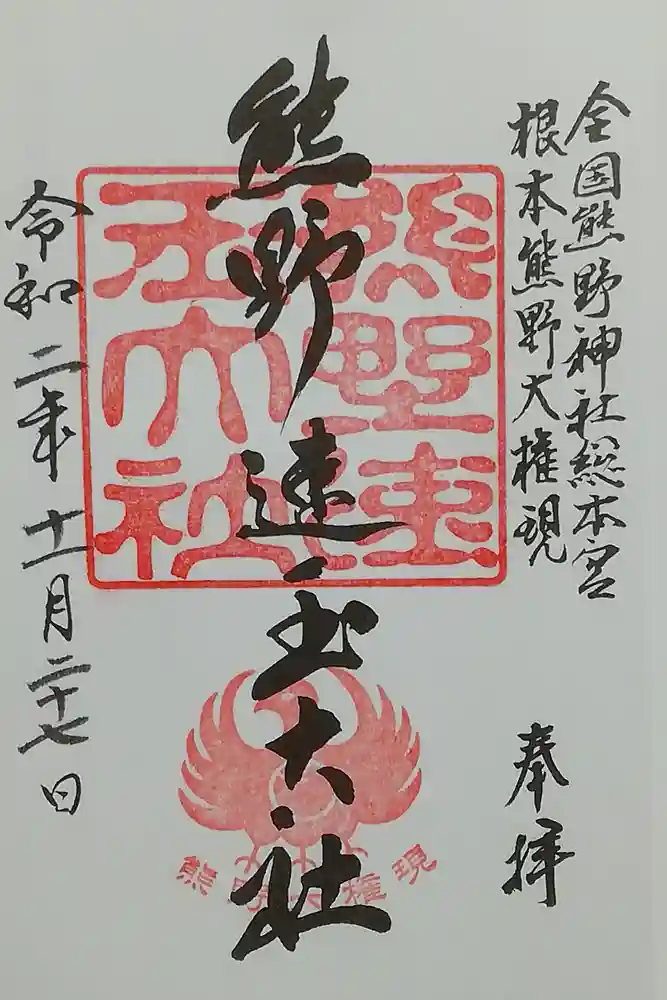 全国熊野神社総本宮
根本熊野大権現
奉拝
熊野速玉大社
熊野速玉大社
熊野大権現
令和二年十一月二十七日